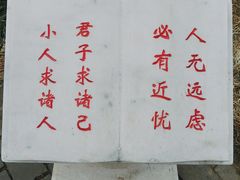 人无远虑
必有近忧
君子求诸己
小人求诸人